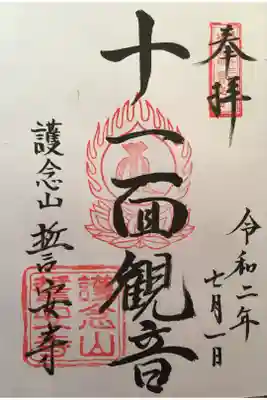 奉拝
令和二年
七月一日
十一面観音
護念山 誓安寺
護念山
誓安寺